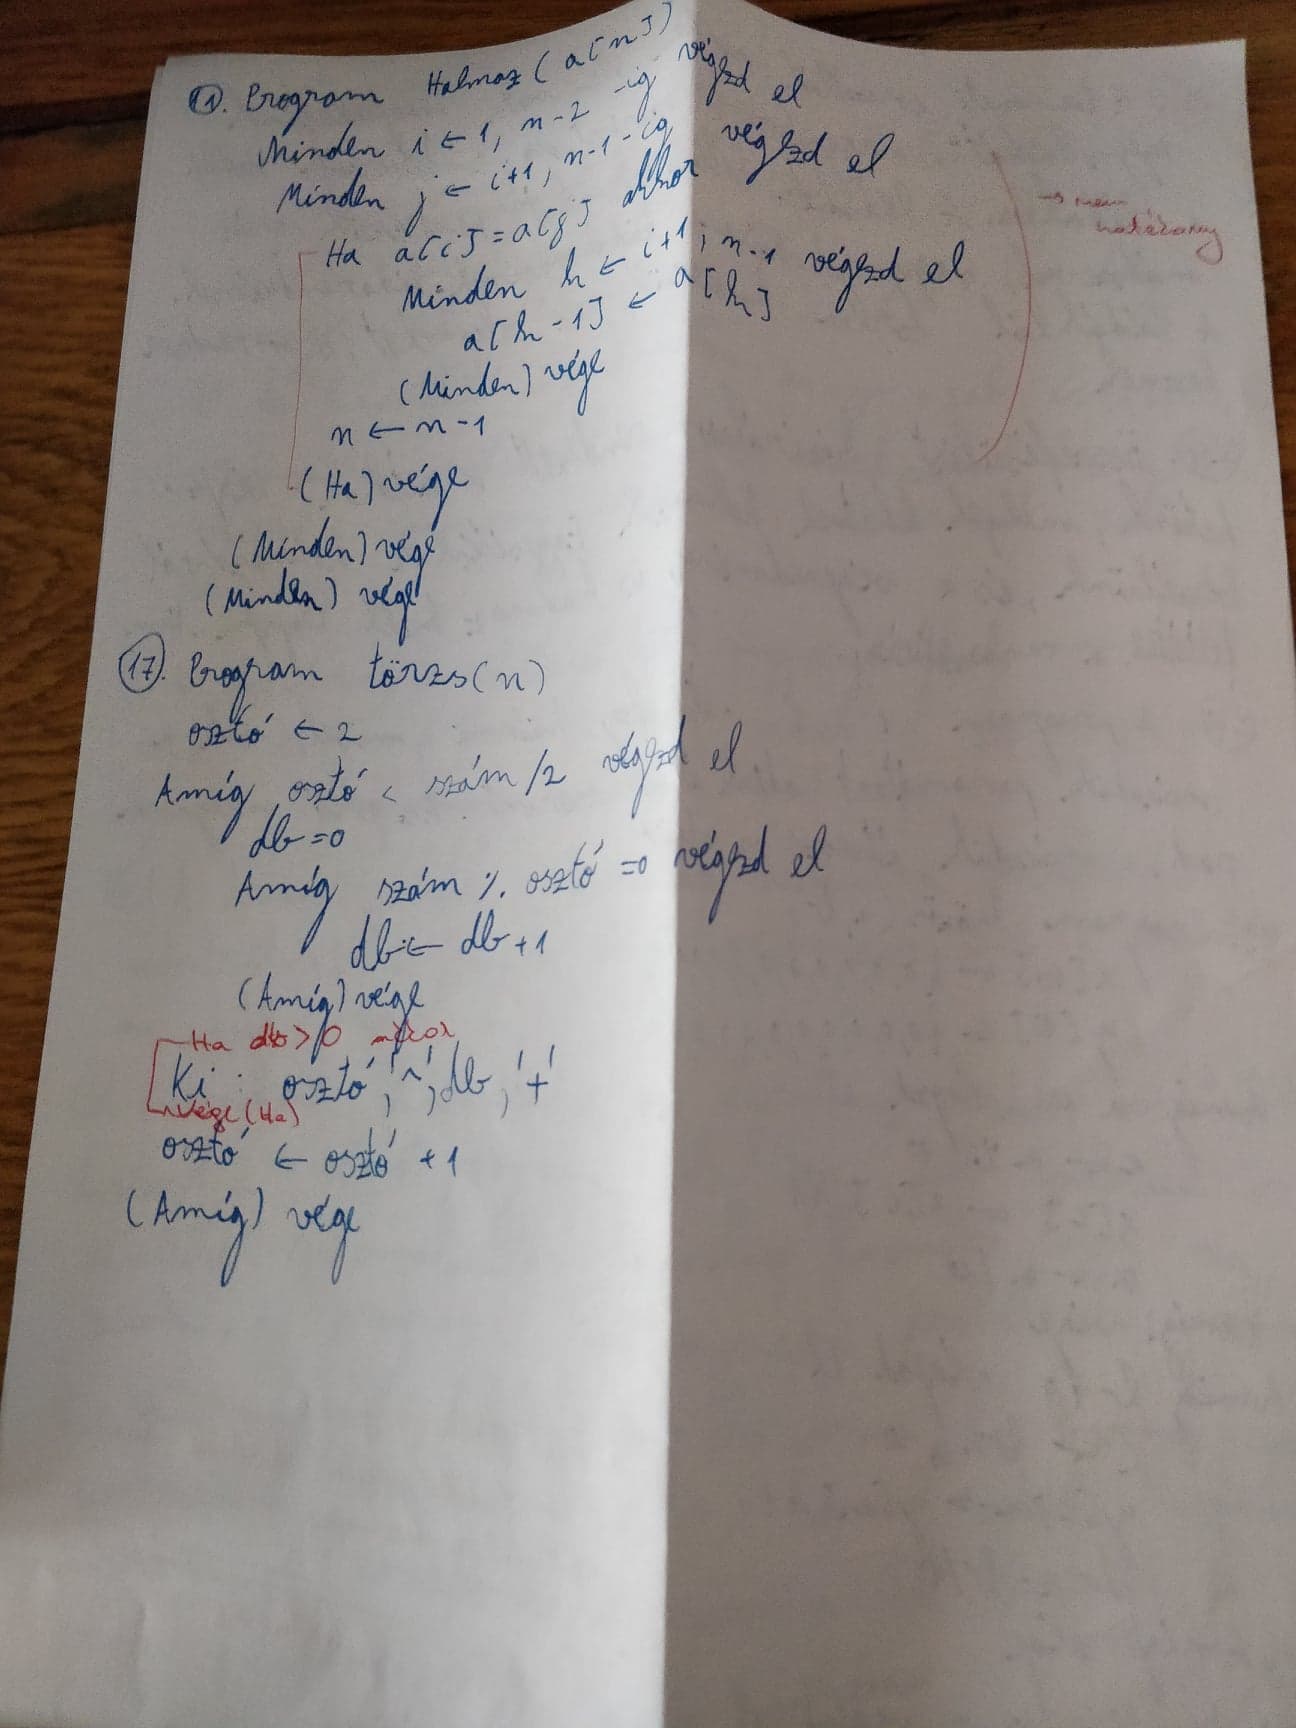 11. Program Halmaz (a[n])
Minden i ← 1, n-2 -ig végezd el
Minden j ← i+1, n-1-ig végezd el
Ha a[i] = a[j] akkor
Minden h ← i+1, n-1 végezd el
a[h-1] ← a[h]
(Minden) vége
n ← n-1
(Ha) vége
(Minden) vége
(Minden) vége
→ nem
hatékony
17. Program törzs(n)
osztó ← 2
Amíg osztó < szám/2 végezd el
db=0
Amíg szám % osztó =0 végezd el
db ← db+1
(Amíg) vége
Ha db>0 akkor
Ki: osztó,'^',db,'+'
vége(Ha)
osztó ← osztó +1
(Amíg) vége